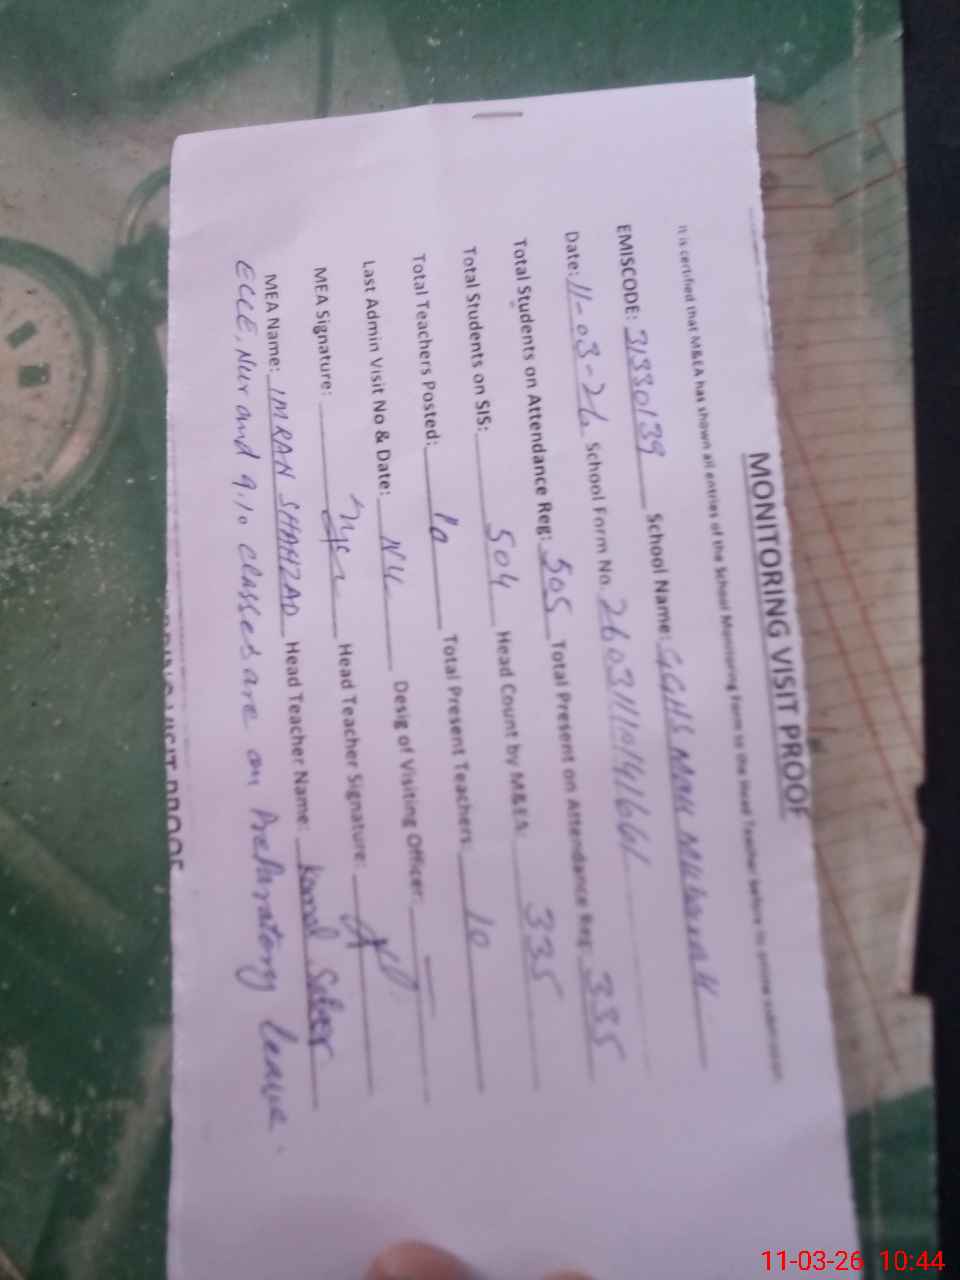 MONITORING VISIT PROOF
It is certified that M&EA has shown all entries of the School Monitoring Form to the Head Teacher before its online submission
EMISCODE: 31330139 School Name: GGHS
Date: 11-03-26 School Form No.
Total Students on Attendance Reg: 505 Total Present on Attendance Reg: 335
Total Students on SIS: 504 Head Count by M&EA 335
Total Teachers Posted: 10 Total Present Teachers 10
Last Admin Visit No & Date: Nil Desig of Visiting Officer:
MEA Signature: Head Teacher Signature:
MEA Name: IMRAN SHAHZAD Head Teacher Name:
ECCE, Nur and 9,10 classes are on Preparatory leave.
VISIT PROOF
11-03-26 10:44